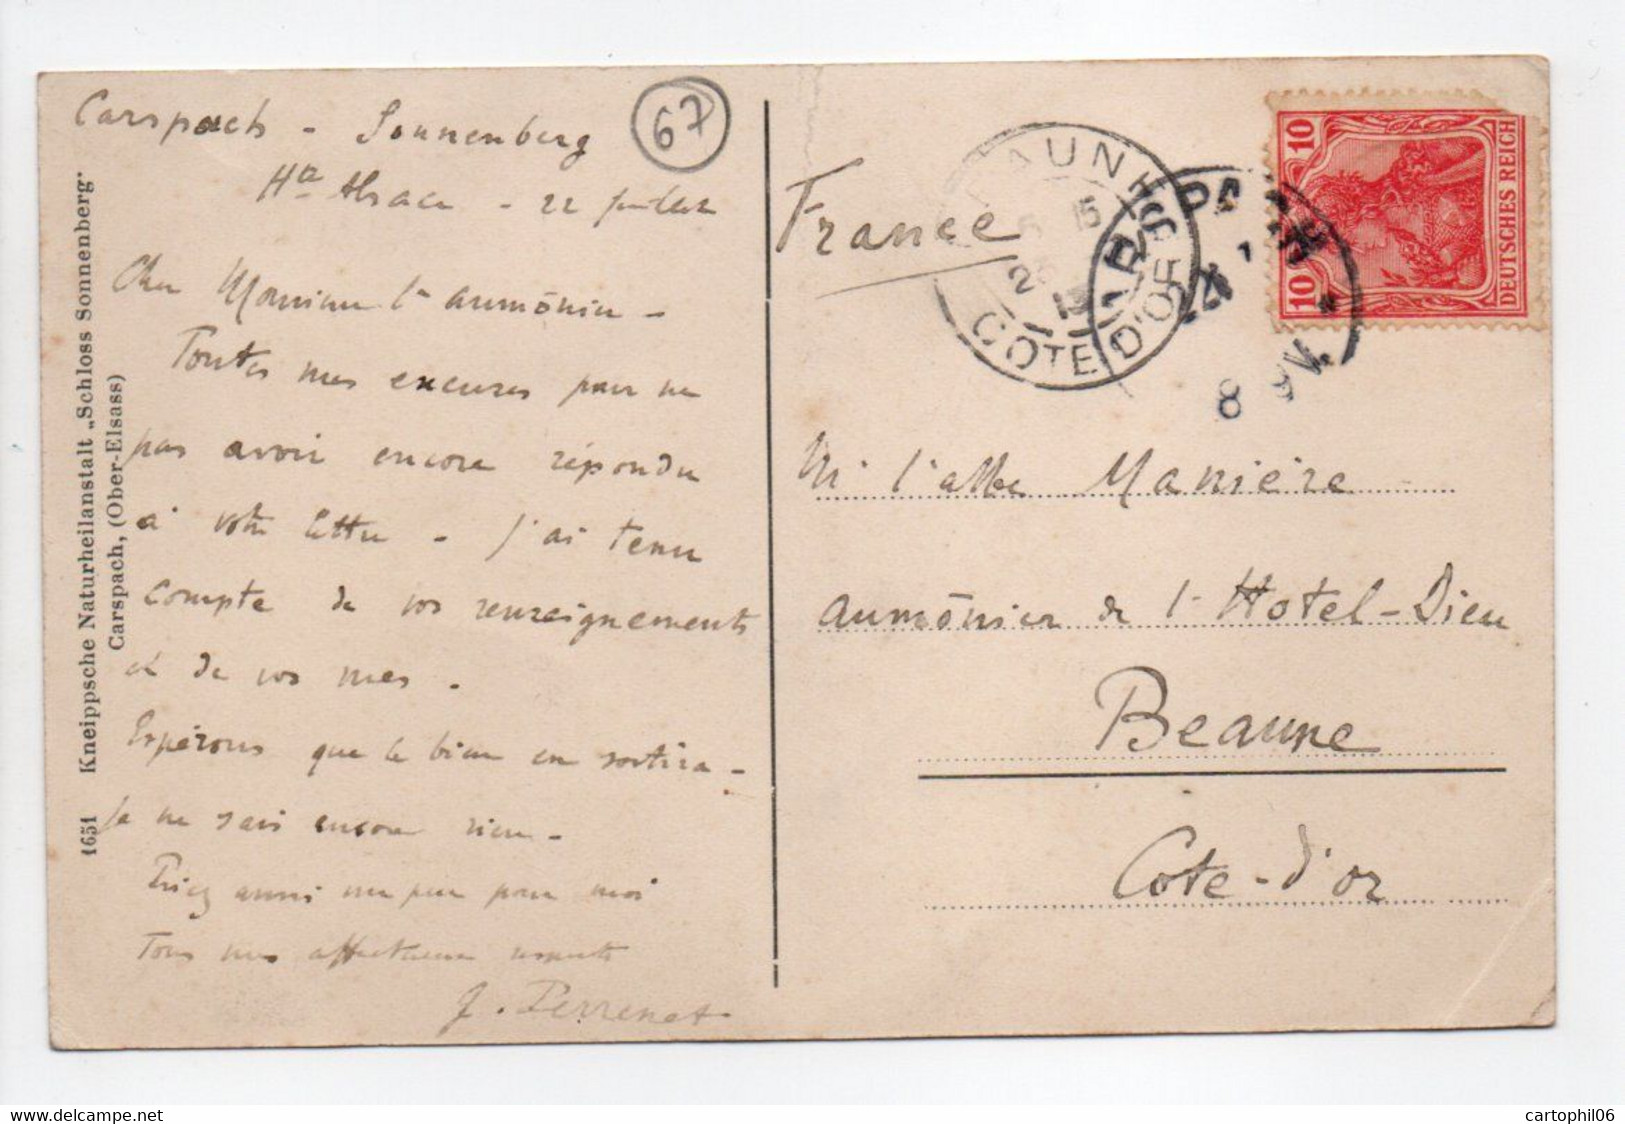 Carspach - Sonnenberg
67
Hte Alsace - 22 juillet
Cher Monsieur l'aumônier -
Toutes mes excuses pour ne
pas avoir encore répondu
à votre lettre - J'ai tenu
compte de vos renseignements
et de vos mes -
Espérons que le bien en sortira -
Je ne sais encore rien -
Priez aussi un peu pour moi
Tous mes affectueux respects
J. Perrenet
1651 Kneippsche Naturheilanstalt „Schloss Sonnenberg"
Carspach, (Ober-Elsass)
France
COTE D'OR
10 10
DEUTSCHES REICH
M l'abbé Manière
aumônier de l'Hotel-Dieu
Beaune
Cote-d'or
www.delcampe.net
cartophil06